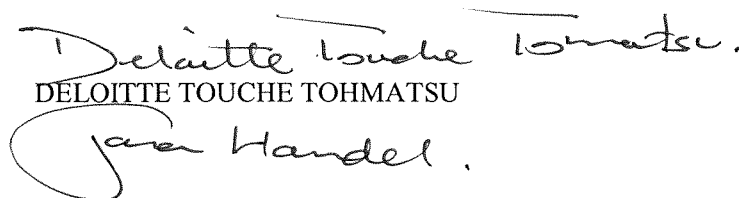 Deloitte Touche Tohmatsu.
DELOITTE TOUCHE TOHMATSU
Tara Handel.